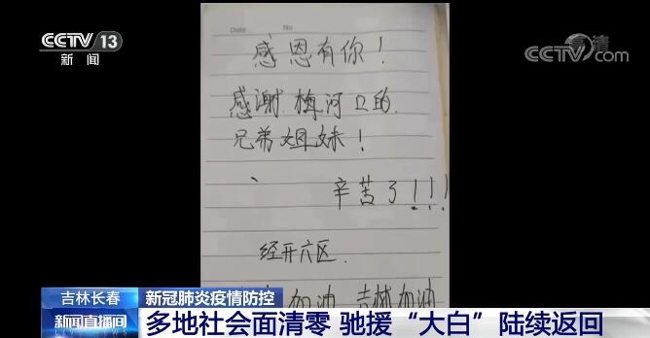 CCTV 13
新闻
CCTV.com
Date
No
感恩有你！
感谢梅河口的
兄弟姐妹！
辛苦了！！！
经开六区
加油 吉林加油
吉林长春
新冠肺炎疫情防控
新闻直播间
多地社会面清零 驰援“大白”陆续返回